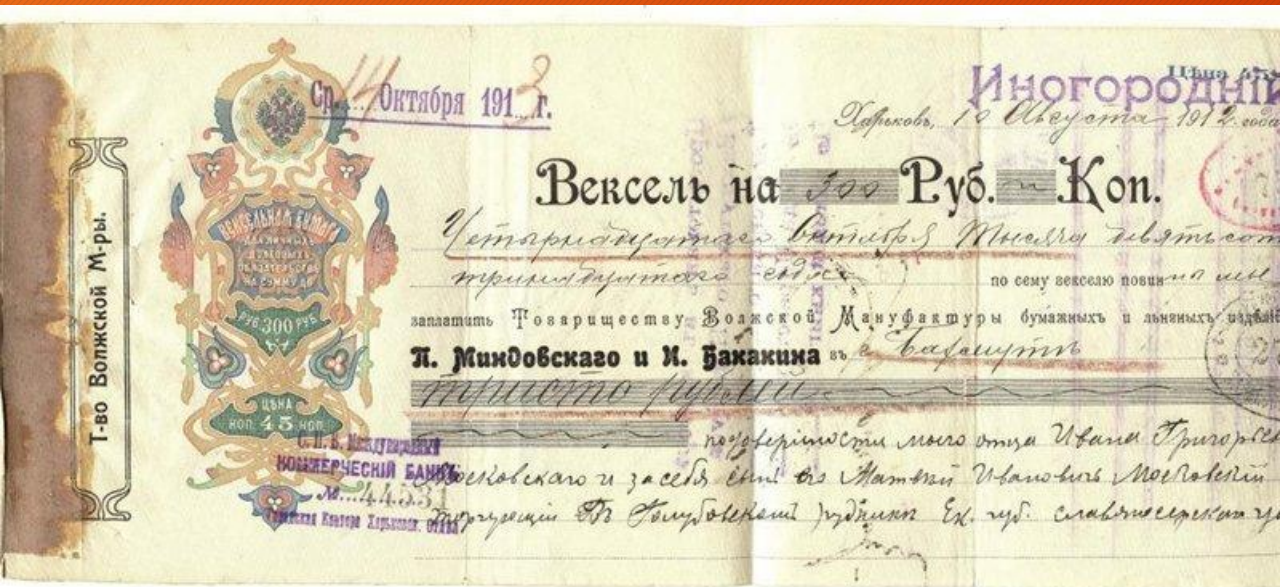 Т-во Волжской М-ры.
ВЕКСЕЛЬНАЯ БУМАГА
ДЛЯ ЛИЧНЫХЪ
ДОЛГОВЫХЪ
ОБЯЗАТЕЛЬСТВЪ
НА СУММУ ДО
РУБ 300 РУБ
ЦѢНА
КОП. 45 КОП.
Ср. 14 Октября 1913 г.
Иногородній
Цѣна
Харьковъ, 10 Августа 1912 года
Вексель на 300 Руб. Коп.
Четырнадцатаго Октября Тысяча девятьсот
тринадцатаго года по сему векселю повинны мы
заплатить Товариществу Волжской Мануфактуры бумажныхъ и льняныхъ издѣлій
П. Миндовскаго и И. Бакакина въ г. Бахмутѣ
триста рублей
по довѣрiиности моего отца Ивана Григорьев
Московскаго и за себя сынъ его Матвѣй Ивановичъ Московскій
торгующій Въ Голубовскомъ рудникѣ Ек. губ. славяносербскаго у
С. П. Б. Международный
КОММЕРЧЕСКІЙ БАНКЪ
№ 44531
Контора Харьковск. отдѣл